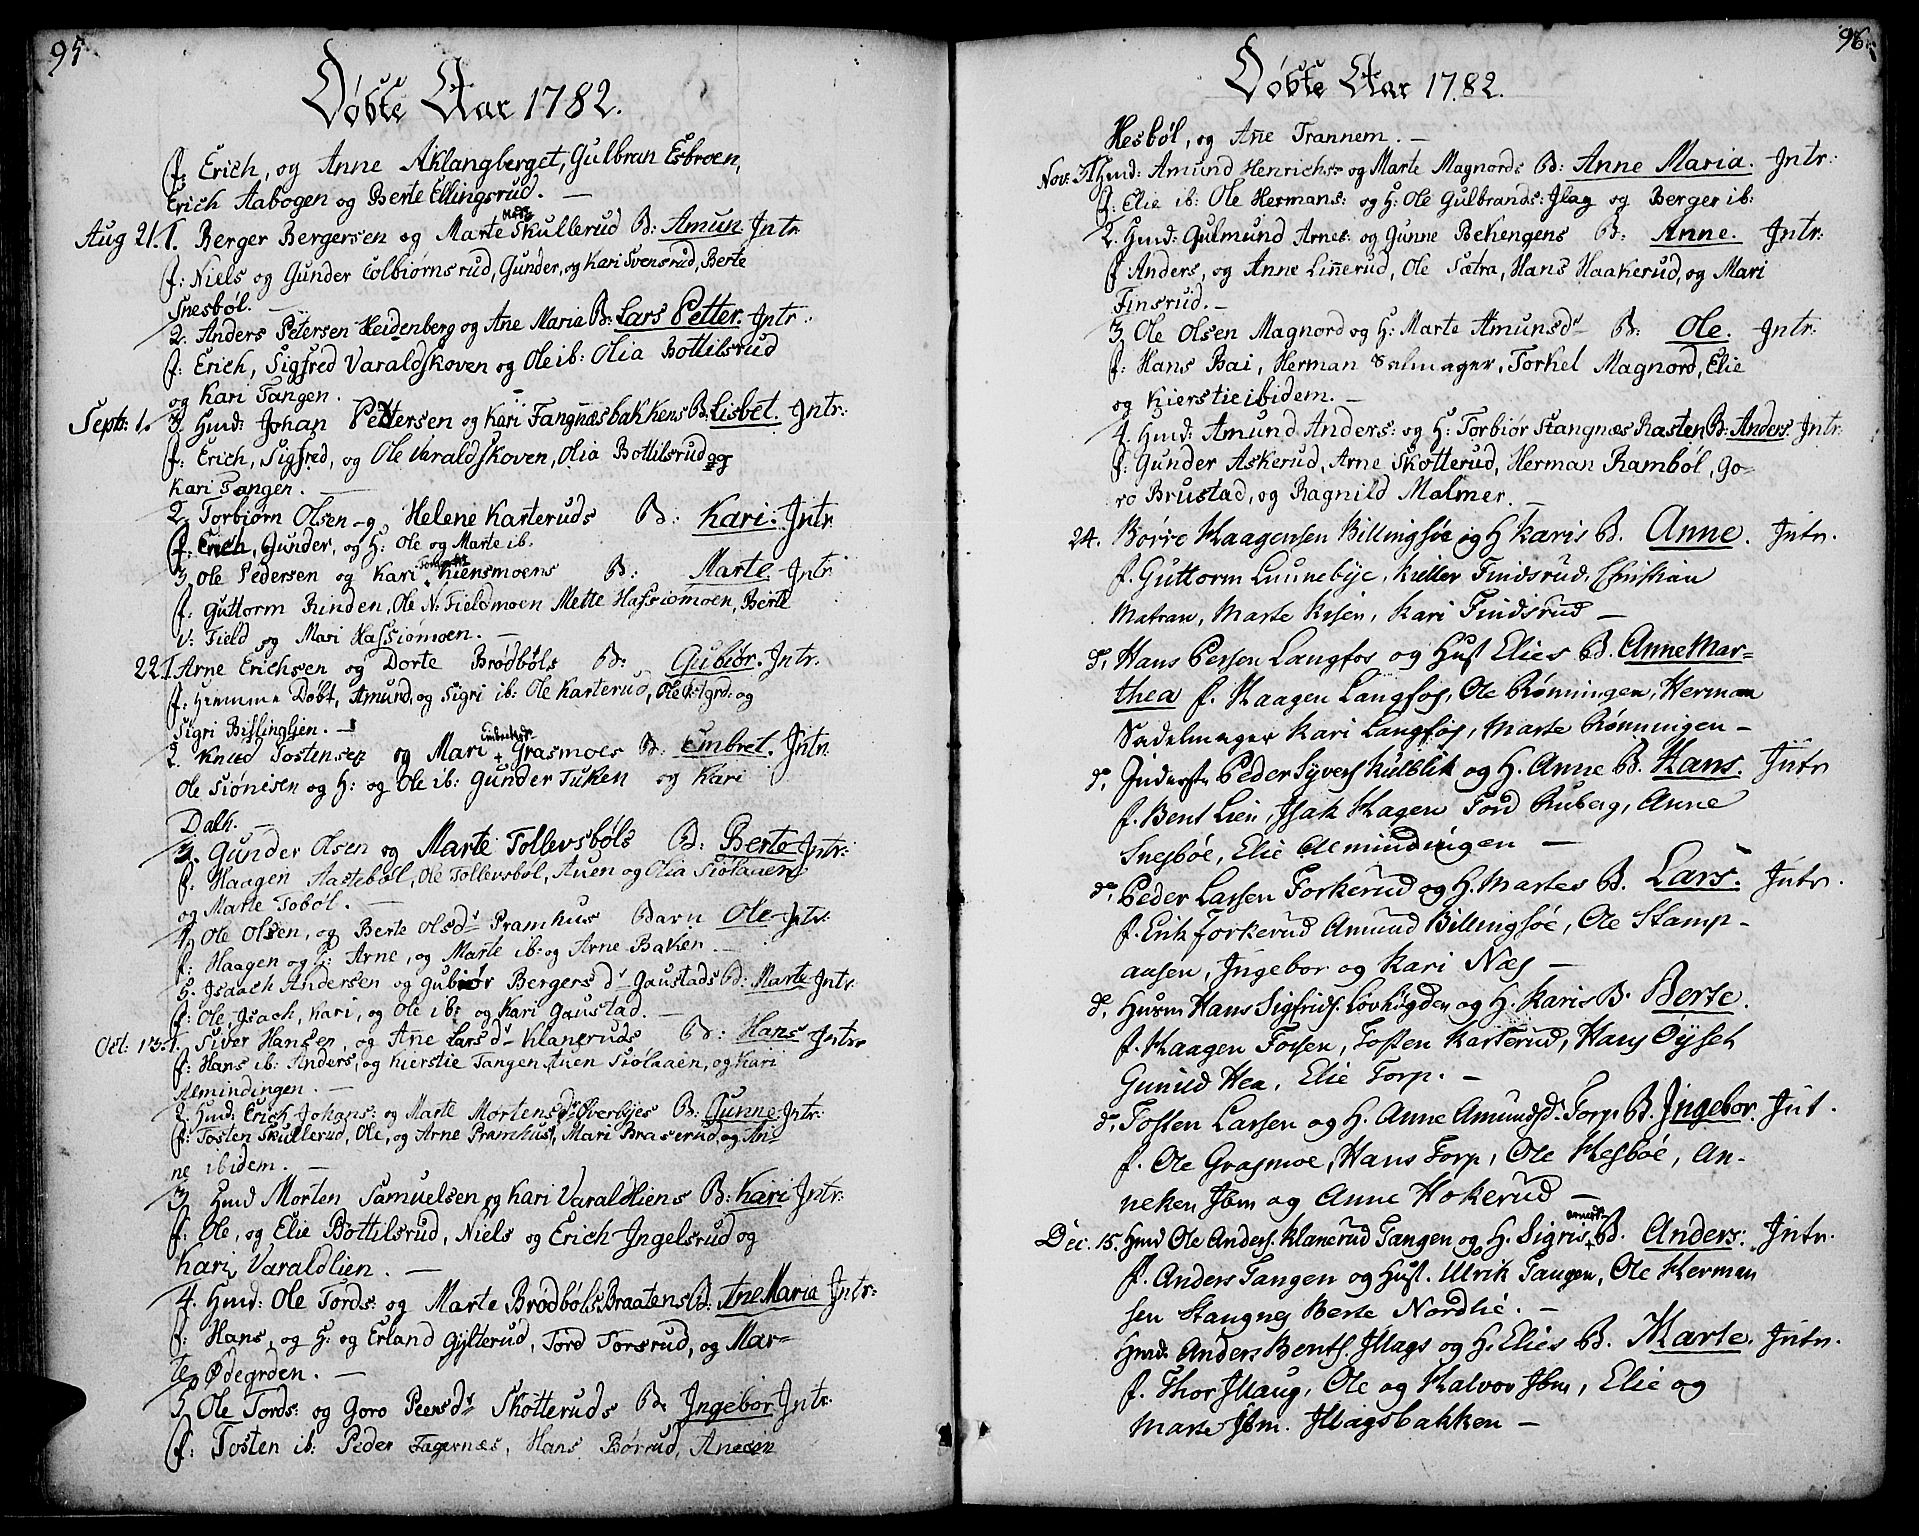 95
Døbte Aar 1782.
f: Erich, og Anne Aklangberget, Gulbran Esbroen,
Erich Aabogen og Berte Ellingsrud. —
Aug 21. 1. Berger Bergersen og Marte Skullerud B: Amun Intr
f: Niels og Gunder Colbiørnsrud, Gunder, og Kari Svensrud, Berte
Snesbøl. —
2. Anders Petersen Heidenberg og Ane Maria B: Lars Petter. Intr:
f: Erich, Sigfred Varaldskoven og Ole ib: Olia Bottilsrud
og Kari Tangen.
Septr. 1. 3. Hmd: Johan Pettersen og Kari Fangnæsbakkens B: Lisbet. Intr:
f: Erich, Sigfred, og Ole Varaldskoven, Olia Bottilsrud og
Kari Tangen. —
2. Torbiørn Olsen og Helene Karteruds B: Kari: Intr
f: Erich, Gunder, og H: Ole og Marte ib.
3. Ole Pedersen og Kari Kiensmoens B: Marte. Intr
f: Guttorm Rinden, Ole N. Fieldmoen Mette Hassiomoen, Berte
v: Field og Mari Hassiomoen. —
22. 1. Arne Erichsen og Dorte Brødbøls B: Gubiør. Intr.
f: Hiemme Døbt, Amund, og Sigri ib: Ole Karterud, Ole Østgrd: og
Sigri Bislinglien. —
2. Knud Tostensen og Mari Embretsdr Grasmoes B: Embret. Intr.
Ole Siønisen og H: og Ole ib: Gunder Tuken og Kari
Dalh. —
3. Gunder Olsen og Marte Tollevsbøls B: Berte Intr:
f: Haagen Aastebøl, Ole Tollevsbøl, Auen og Olia Siølauen
og Marte Tobøl. —
4. Ole Olsen, og Berte Olsdr Pramhus Barn Ole Intr:
f: Haagen og H: Arne, og Marte ib: og Arne Baken. —
5. Isaach Andersen og Gubiør Bergersdr Gaustads B: Marte Intr.
f: Ole, Isach, Kari, og Ole ib: og Kari Gaustad. —
Oct: 13. 1. Siver Hansen, og Ane Larsdr Klaneruds B: Hans Intr:
f: Hans ib: Anders, og Kierstie Tangen, Auen Siølaaen, og Kari
Almindingen. —
2. Hmd: Erich Johans: og Marte Mortensdr Øverbyes B: Gunne: Intr:
f: Tosten Skullerud, Ole, og Arne Pramhus, Mari Braserud, og An-
ne ibidem. —
3 Hmd Morten Samuelsen og Kari Varaldliens B: Kari Intr:
f: Ole, og Elie Bottilsrud, Niels og Erich Ingelsrud og
Kari Varaldlien. —
4. Hmd: Ole Tords: og Marte Brødbøls Braatens B: Ane Maria Intr:
f: Hans, og H: og Erland Gylterud, Tord Torsrud, og Mar-
te Ødegrden. —
5 Ole Tords: og Goro Peersdr Skotteruds B: Ingebor Intr.
f: Tosten ib: Peder Fagernæs, Hans Børrud, Ane
96
Døbte Aar 1782.
Hesbøl, og Ane Trannem. —
Nov: 3. 1. Hmd: Amund Henrichs og Marte Magnords B: Anne Maria. Intr.:
f: Elie ib: Ole Hermans: og H: Ole Gulbrands: Ilag og Berger ib:
2. Hmd: Gulmund Arnes: og Gunne Bekengens B: Anne. Intr:
f Anders, og Anne Linnerud, Ole Sætra, Hans Haakerud, og Mari
Finsrud. —
3 Ole Olsen Magnord og H: Marte Amunsdr B: Ole. Intr:
f: Hans Bai, Herman Salmager, Torkel Magnord, Elie
og Kierstie ibidem. —
4. Hmd: Amund Anders: og H: Torbiør Stangnæs Rasten B: Anders. Intr:
f: Gunder Askerud, Arne Skotterud, Herman Rambøl, Go-
ro Brustad, og Ragnild Malmer. —
24. Børre Haagensen Billingsøe og H Karis B. Anne. Intr.
f. Guttorm Lunnebye, Kieller Findsrud, Christian
Matran, Marte Kisen, Kari Findsrud —
d. Hans Persen Langfos og Hust Elies B. Anne Mar-
thea f. Haagen Langfos, Ole Rønningen, Herman
Sadelmager Kari Langfos, Marte Rønningen —
d. Inderste Peder Syvers Kulblik og H. Anne B. Hans. Intr
f. Bent Lien, Isak Hagen Tord Ruberg, Anne
Snesbøe, Elie Almindingen —
d. Peder Larsen Forkerud og H. Martes B. Lars. Intr.
f. Erik Forkerud Amund Billingsøe, Ole Stamp-
aasen, Ingebor og Kari Næs —
d. Husm Hans Sigfrids. Lovhøgden og H. Karis B. Berte.
f. Haagen Fossen, Tosten Karterud, Hans Øyset
Gunild Hea, Elie Torp. —
d. Tosten Larsen og H. Anne Amundsd. Torp B. Ingebor. Int.
f. Ole Grasmoe, Hans Torp, Ole Hesbøe, An-
neken Ibm og Anne Hokerud —
Dec. 15. Hmd Ole Anders. Klanerud Tangen og H. Sigris B. Anders: Intr.
f. Anders Tangen og Hust. Ulrik Tangen, Ole Herman
sen Stangnes Berte Nordlie. —
Hmd: Anders Bents. Illags og H. Elies B. Marte. Intr.
f. Thor Illaug, Ole og Halvor Ibm, Elie og
Marte Ibm. Illagsbakken —